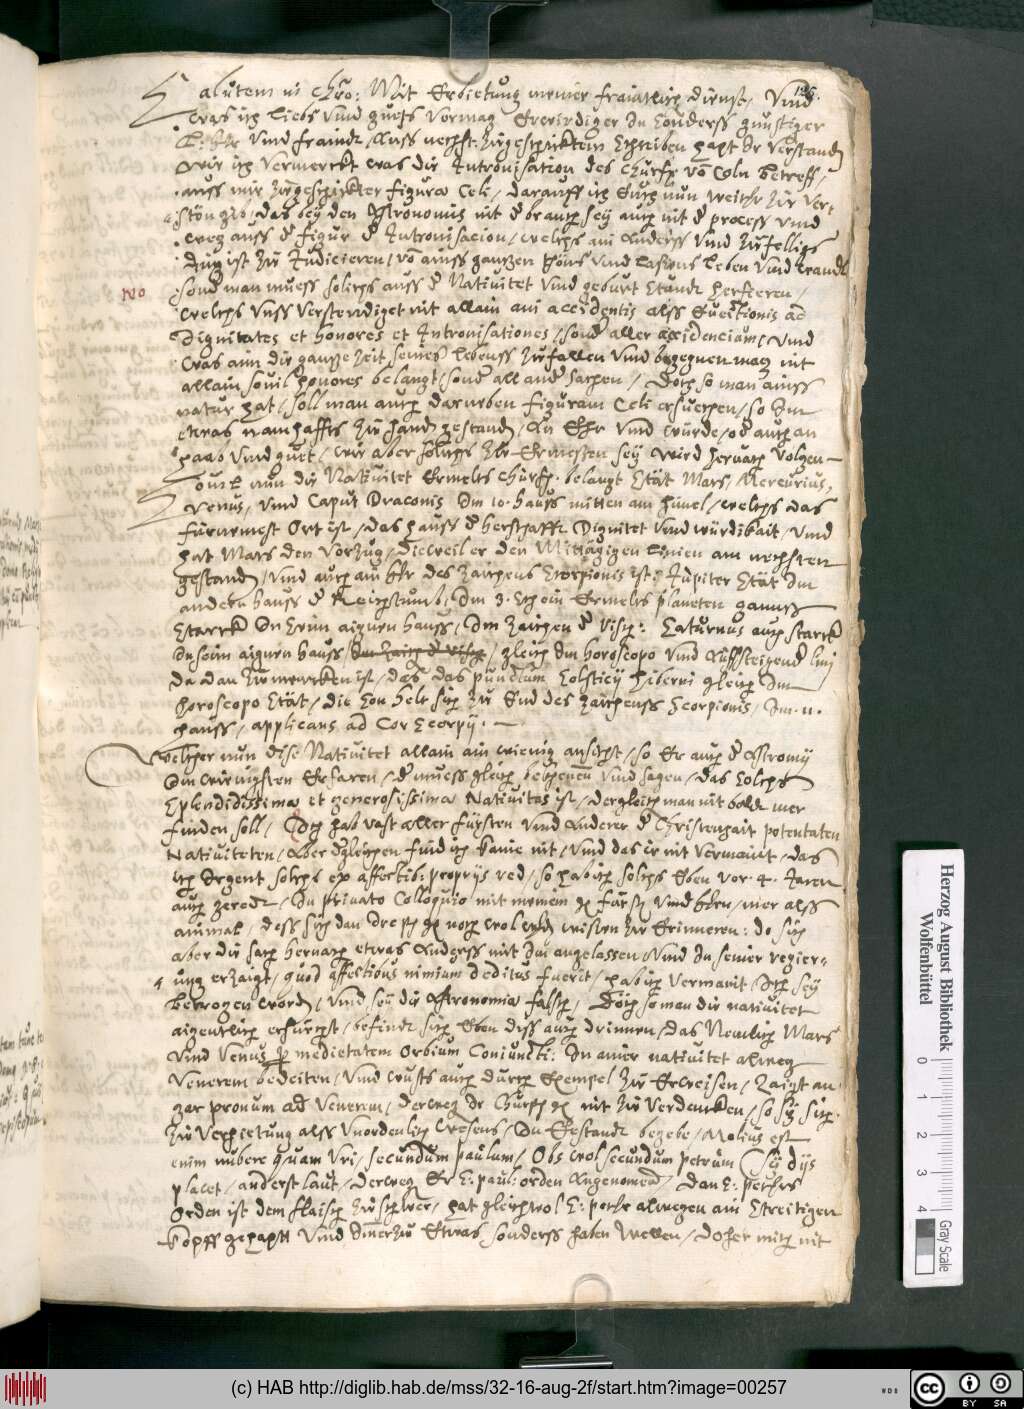 125.
Salutem in Chro: Mit Erbietung meiner fraintlich dienst, Vnd
was ich liebs vnd guets vormag Erwirdiger In sonderss gunstiger
L: Her vnd fraindt, Auss nechst zugeschicktem schreiben hapt Ir verstand
wie ich vermerckt was die Intronisation des Churf: von Coln betreff,
auss mir zugeschickter figura Celi, darauff ich Euch nun weither zu verst
ston gib, das bey den Astronomis nit der brauch sey auch nit der process vnd
weg auss der figur der Intronisacion, welchs ain anderss vnd zufelligs
ding ist zu Iudicieren, von aines gantzen thuns vnd lassens leben vnd wandl
No
sond man muess solichs auss der Nativitet vnd geburt standt herfieren,
welchs vnss verstendiget nit allain ain accidentis alss Questionis ad
Dignitates et honores et Intronisationes, sond aller accidencium, vnd
was aim die gantze Zeit seines lebenss zufallen vnd begegnen mag nit
allain souil honores belangt, sond all and sachen, Doch so man ainss
natur hat, soll man auch darneben figuram Celi ersuechen, so Im
etwas namhaffts zu handt gestanden, An Ehr vnd wurde, od auch an
haab vnd guet, wie aber solichs zu Ermessen sey wird hernach volgen
Souil nun die Nativitet Ermelts Churf. belangt Stat Mars, Mercurius,
Venus, vnd Caput Draconis Im 10. hauss mitten am himel, welchs das
furnemest Ort ist, das hauss der herschafft Dignitet vnd wurdikait, vnd
hat Mars den Vorzug, Dieweil er den Mittagigen Linien am nechsten
gestanden, vnd auch ain Her des Zaichens Scorpionis ist: Jupiter Stat Im
andern hauss der Reichstumb, Im 3. Schein Ermelts planeten gannss
Starck In seim aignen hauss, Im Zaichen der visch: Saturnus auch starck
In seim aignen hauss, Im Zaich der visch, gleich Im horoscopo vnd Auffsteigend linj
da dan zu mercken ist, das das punctum Solsticij hiberni gleich Im
horoscopo Stat, die Son helt sich zu End des Zaichenss Scorpionis, Im 11.
hauss, applicans ad Cor Scorpij.
Welcher nun dise Nativitet allain ain wienig ansicht, so Er auch der Astromij
Im wenigsten Erfaren, der muess gleich bekhenen vnd sagen, das solchs
Splendidissima et generosissima Nativitas ist, dergleich man nit bald mer
finden soll, Ich hab vast aller fursten vnd anderer der Christenhait potentaten
Nativiteten, Aber dergleichen find ich kaine nit, vnd das ir nit vermaint, das
ich Ergent solchs ex affectib: proprijs red, so hab ich solchs Eben vor 4. Jaren
auch geredt, In privato Colloquio mit meinem g: fursten vnd Hern, mer alss
ainmal, dess sich dan
aber die sach hernach etwas anderss mit Im angelassen, vnd In seiner regier-
ung erzaigt, quod affectibus nimium deditus fuerit, hab ich vermaint, Ich sey
betrogen worden, vnd sey die Astronomia falsch, Doch so man die nativitet
aigentlich ersuecht, befindt sich Eben diss auch drinnen, das Nemlich Mars
vnd Venus per medietatem Orbium Coniuncti: In ainer nativitet alweg
Venerem bedeiten, vnd wusts auch durch Exempel zu Erweisen, Zaigt an
gar pronum ad Venerem, derweg der Churf: g: nit zu verdencken, so sy sich
zu verhietung alss vnordenlich wesens, In Eestandt begebe, Melius est
enim nubere quam Vri, secundum paulum, Obs wol secundum petrum (Sy dijs
placet, anderst laut, derweg Er S: paul: orden Angenomen, Dan S: peters
Orden ist dem flaisch zu schwer, hat gleichwol S: peter alwegen ain Streitigen
kopff gehaptt vnd Imerzu Etwas sonderss haben wellen, Doher mich nit
Herzog August Bibliothek
Wolfenbüttel
0 1 2 3 4
Gray Scale
(c) HAB http://diglib.hab.de/mss/32-16-aug-2f/start.htm?image=00257
WDB
cc BY SA